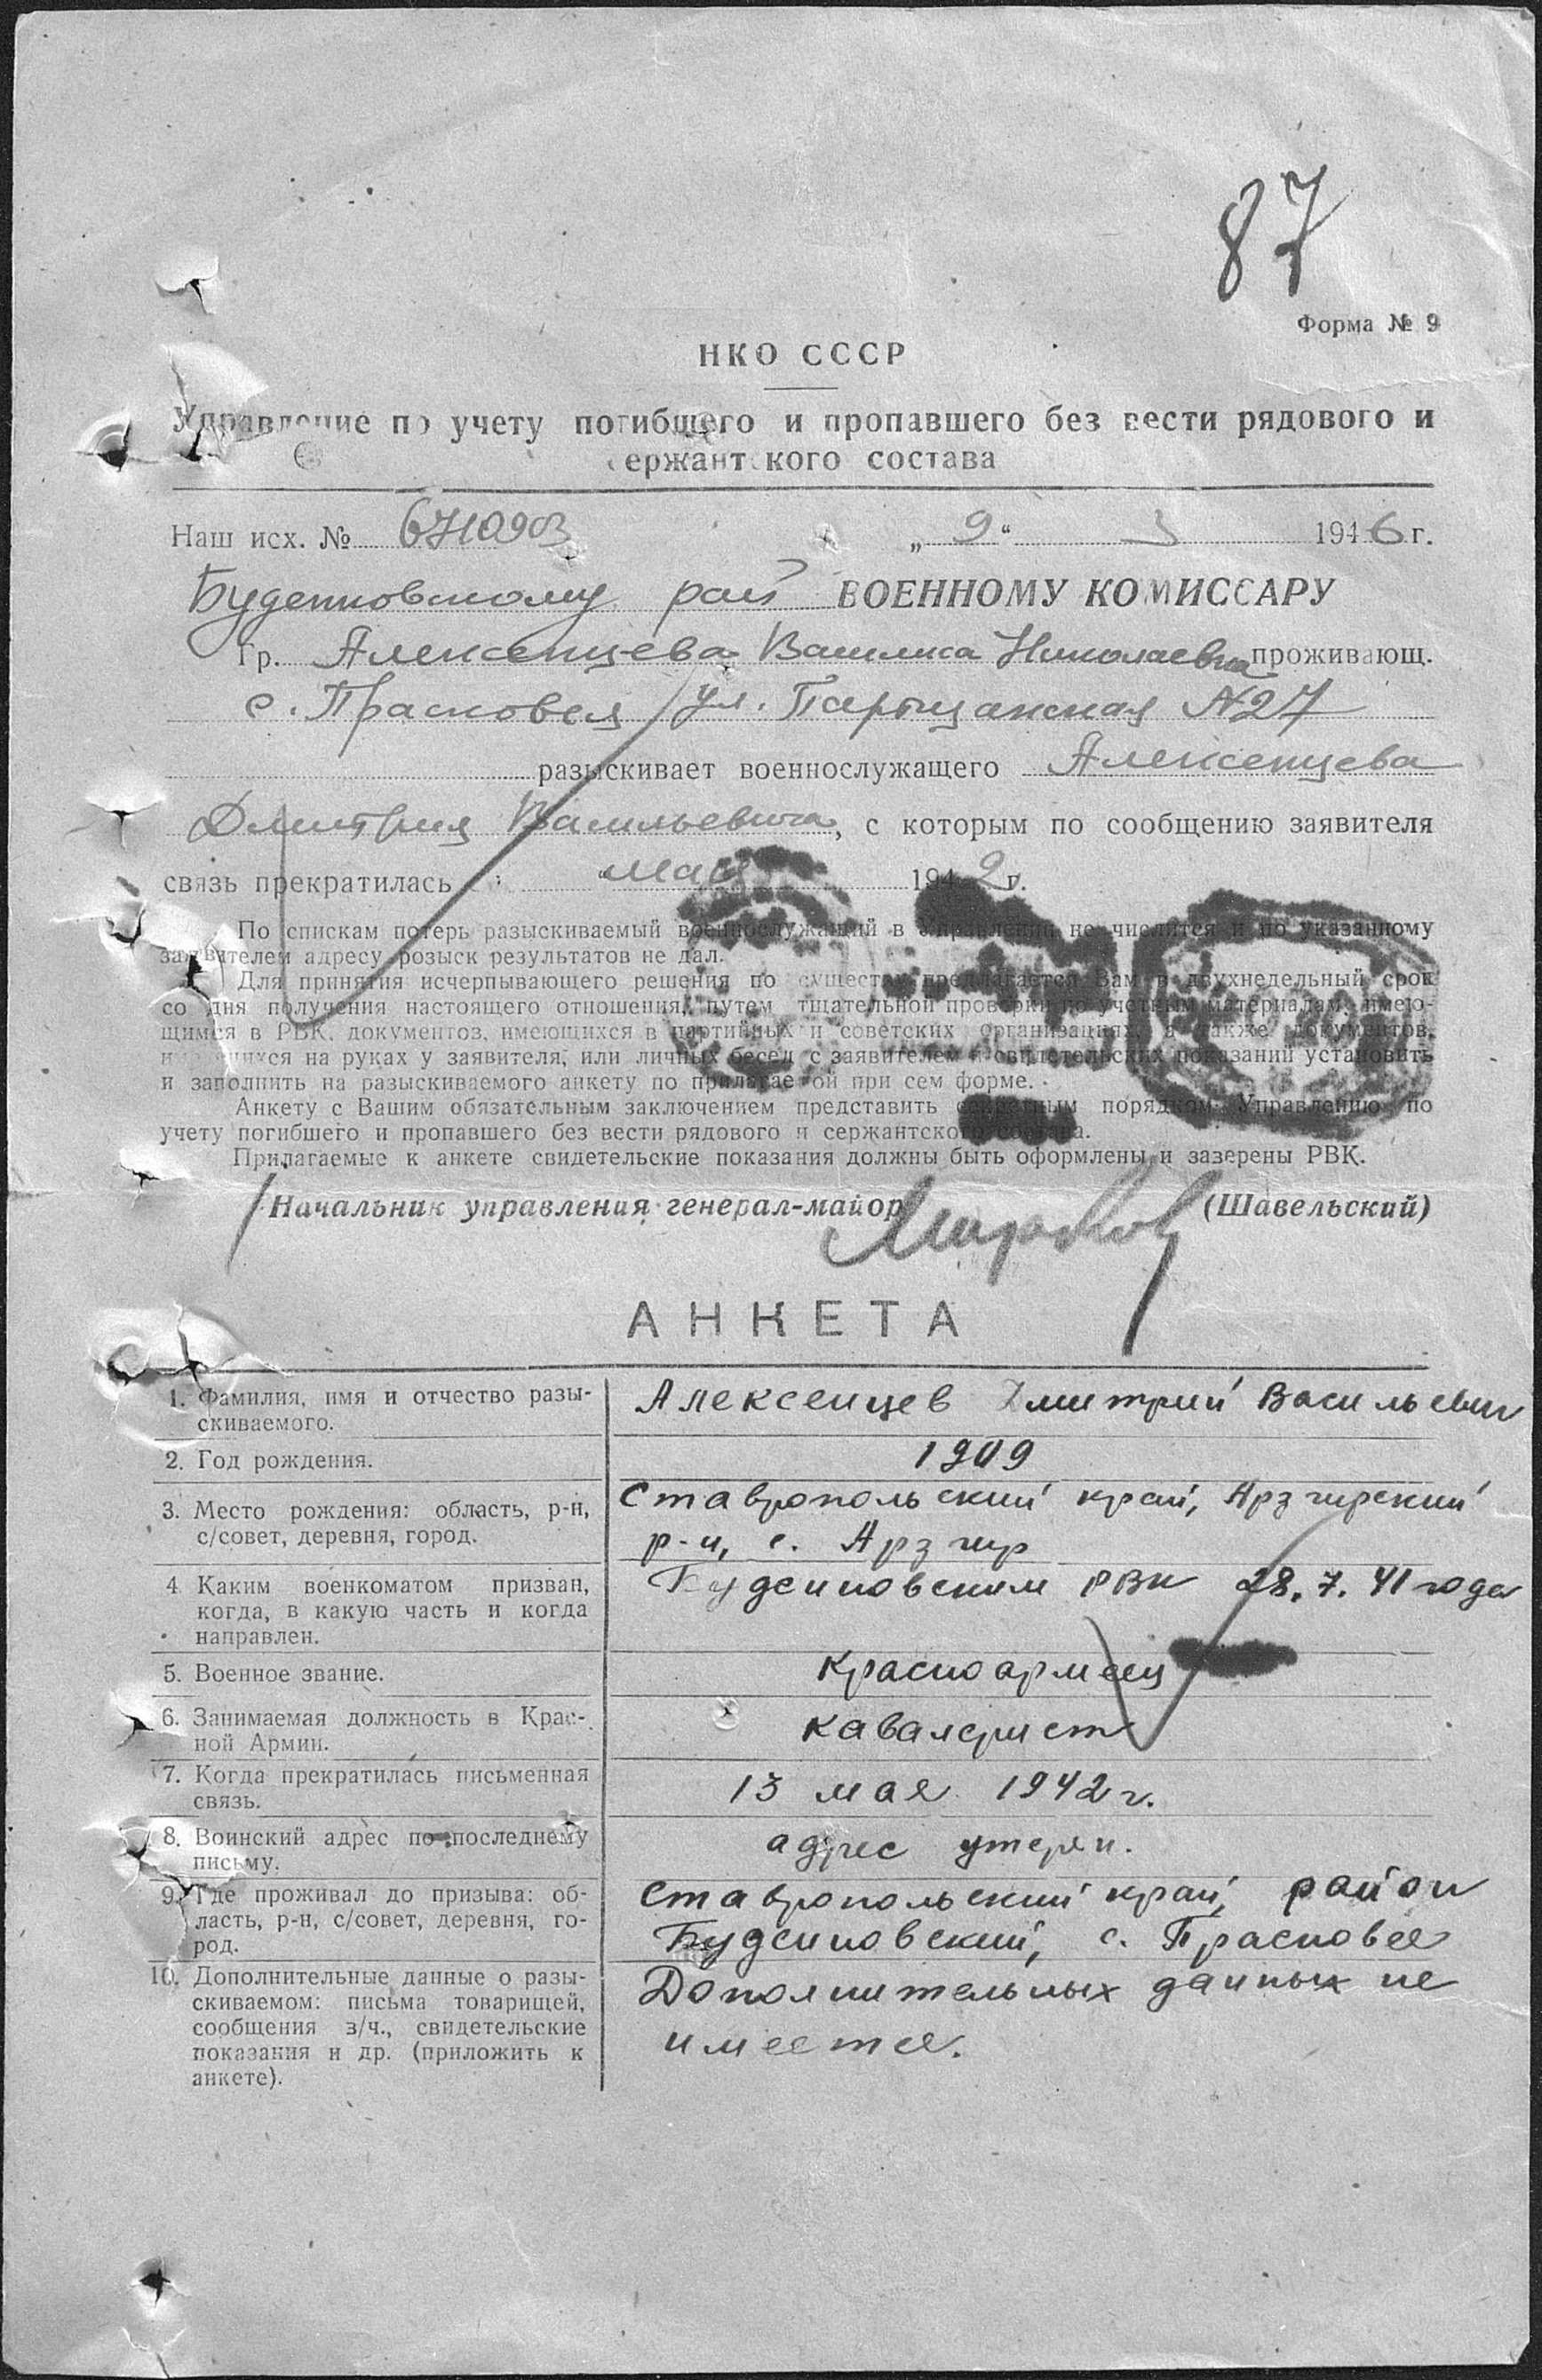 87
Форма № 9
НКО СССР
Управление по учету погибшего и пропавшего без вести рядового и
сержантского состава
Наш исх. № 6710903 „9“ 3 1946 г.
Буденновскому рай ВОЕННОМУ КОМИССАРУ
Гр. Алексенцева Василиса Николаевна проживающ.
с. Прасковея ул. N 27
разыскивает военнослужащего Алексенцева
Дмитрия Васильевича, с которым по сообщению заявителя
связь прекратилась мая 1942 г.
По спискам потерь разыскиваемый военнослужащий в Управлении не числится и по указанному
заявителем адресу розыск результатов не дал.
Для принятия исчерпывающего решения по существу предлагается Вам в двухнедельный срок
со дня получения настоящего отношения, путем тщательной проверки по учетным материалам, имею-
щимся в РВК, документов, имеющихся в партийных и советских организациях, а также документов,
имеющихся на руках у заявителя, или личных бесед с заявителем и свидетельских показаний установить
и заполнить на разыскиваемого анкету по прилагаемой при сем форме.
Анкету с Вашим обязательным заключением представить секретным порядком Управлению по
учету погибшего и пропавшего без вести рядового и сержантского состава.
Прилагаемые к анкете свидетельские показания должны быть оформлены и заверены РВК.
Начальник управления генерал-майор (Шавельский)
АНКЕТА
1. Фамилия, имя и отчество разы-
скиваемого.
Алексенцев Дмитрий Васильевич
2. Год рождения.
1909
3. Место рождения: область, р-н,
с/совет, деревня, город.
Ставропольский край, Арзгирский
р-н, с. Арзгир
4 Каким военкоматом призван,
когда, в какую часть и когда
направлен.
Буденновским РВК 28.7.41 года
5. Военное звание.
красноармеец
6. Занимаемая должность в Крас-
ной Армии.
кавалерист
7. Когда прекратилась письменная
связь.
13 мая 1942 г.
8. Воинский адрес по последнему
письму.
адрес утерян.
9. Где проживал до призыва: об-
ласть, р-н, с/совет, деревня, го-
род.
Ставропольский край, район
Буденновский, с. Прасковея
10. Дополнительные данные о разы-
скиваемом: письма товарищей,
сообщения з/ч., свидетельские
показания и др. (приложить к
анкете).
Дополнительных данных не
имеется.